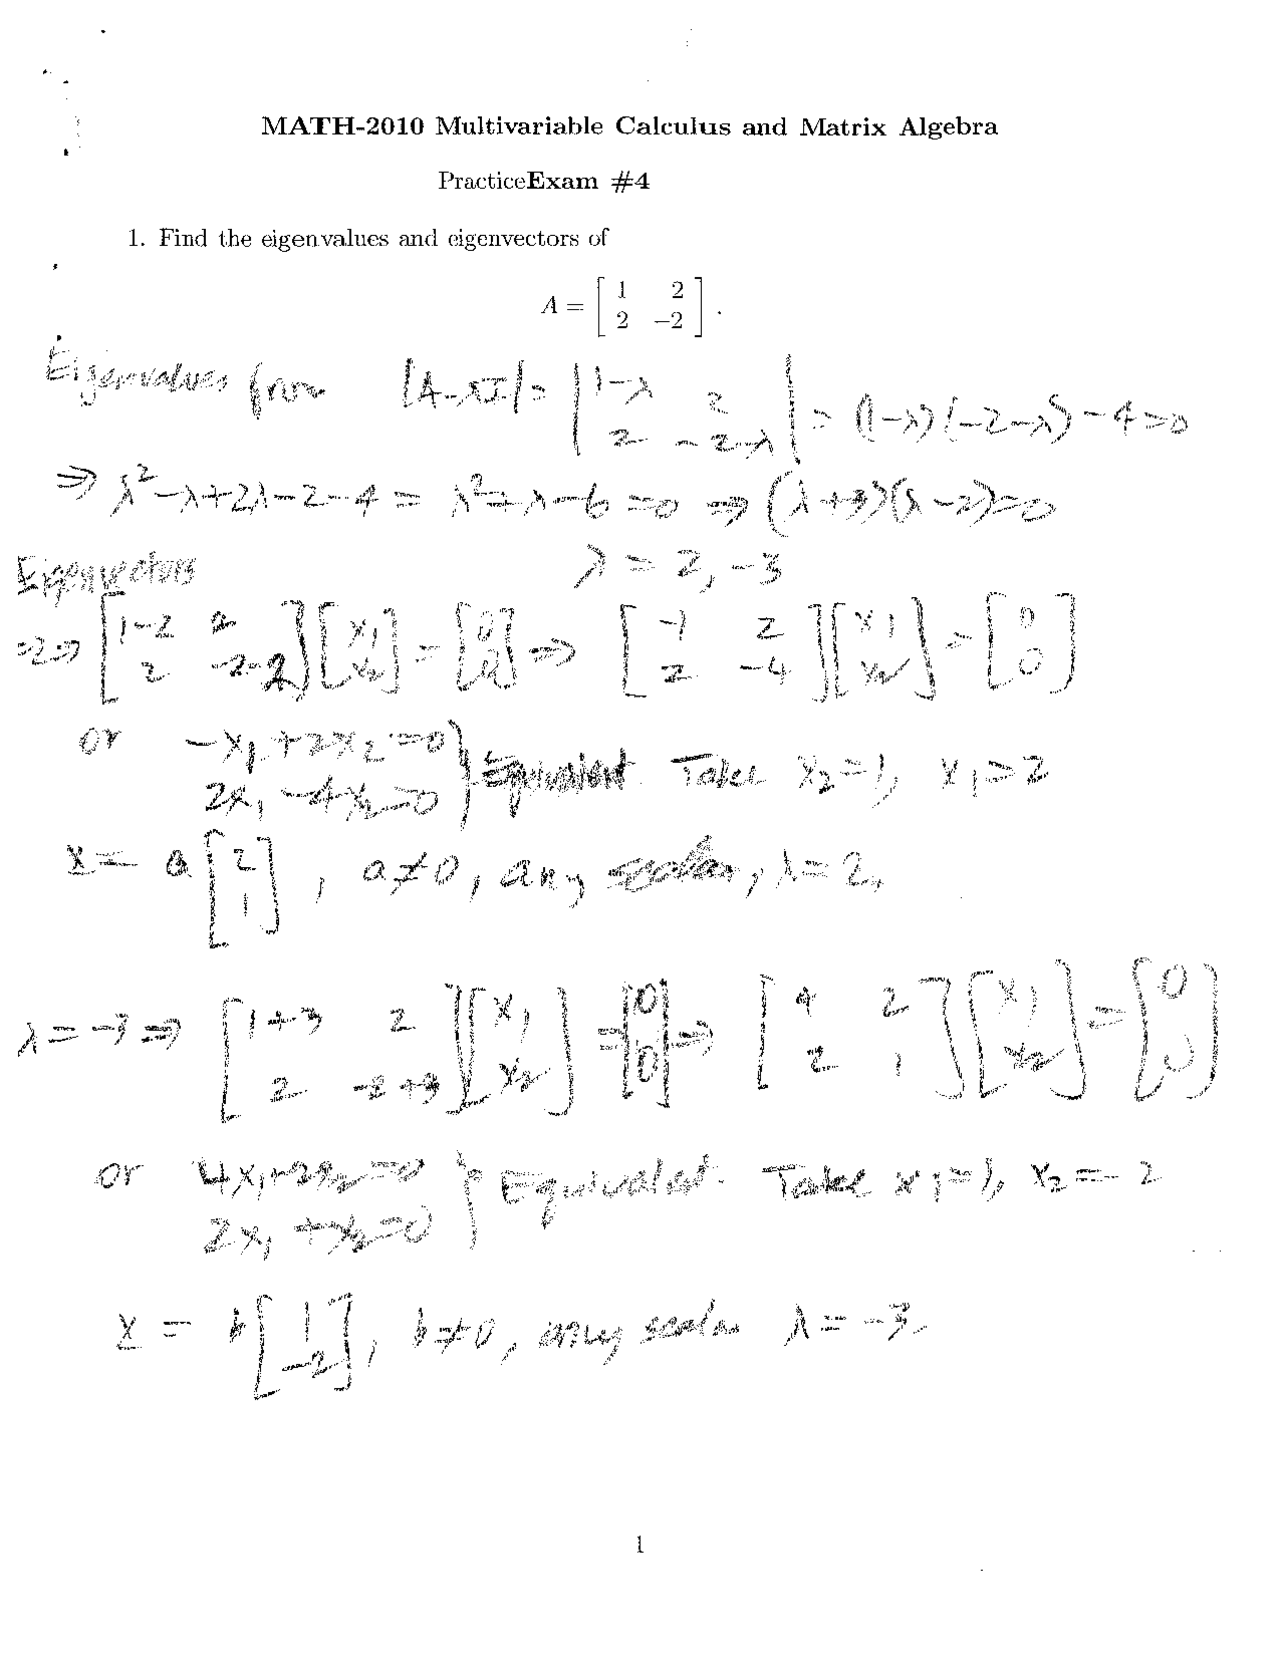 MATH-2010 Multivariable Calculus and Matrix Algebra
PracticeExam #4
1. Find the eigenvalues and eigenvectors of
A = [ 1 2 ; 2 −2 ] .
Eigenvalues from |A-λI| = | 1-λ 2 ; 2 -2-λ | = (1-λ)(-2-λ)-4=0
⇒ λ²-λ+2λ-2-4 = λ²+λ-6=0 ⇒ (λ+3)(λ-2)=0
Eigenvectors λ = 2, -3
=2⇒ [ 1-2 2 ; 2 -2-2 ][ x₁ ; x₂ ] = [ 0 ; 0 ] ⇒ [ -1 2 ; 2 -4 ][ x₁ ; x₂ ] = [ 0 ; 0 ]
or -x₁+2x₂=0
2x₁-4x₂=0 } Equivalent. Take x₂=1, x₁=2
x = a [ 2 ; 1 ], a≠0, any scalar, λ=2.
λ=-3⇒ [ 1+3 2 ; 2 -2+3 ][ x₁ ; x₂ ] = [ 0 ; 0 ] ⇒ [ 4 2 ; 2 1 ][ x₁ ; x₂ ] = [ 0 ; 0 ]
or 4x₁+2x₂=0
2x₁+x₂=0 } Equivalent. Take x₁=1, x₂=-2
x = b [ 1 ; -2 ], b≠0, any scalar λ=-3.
1